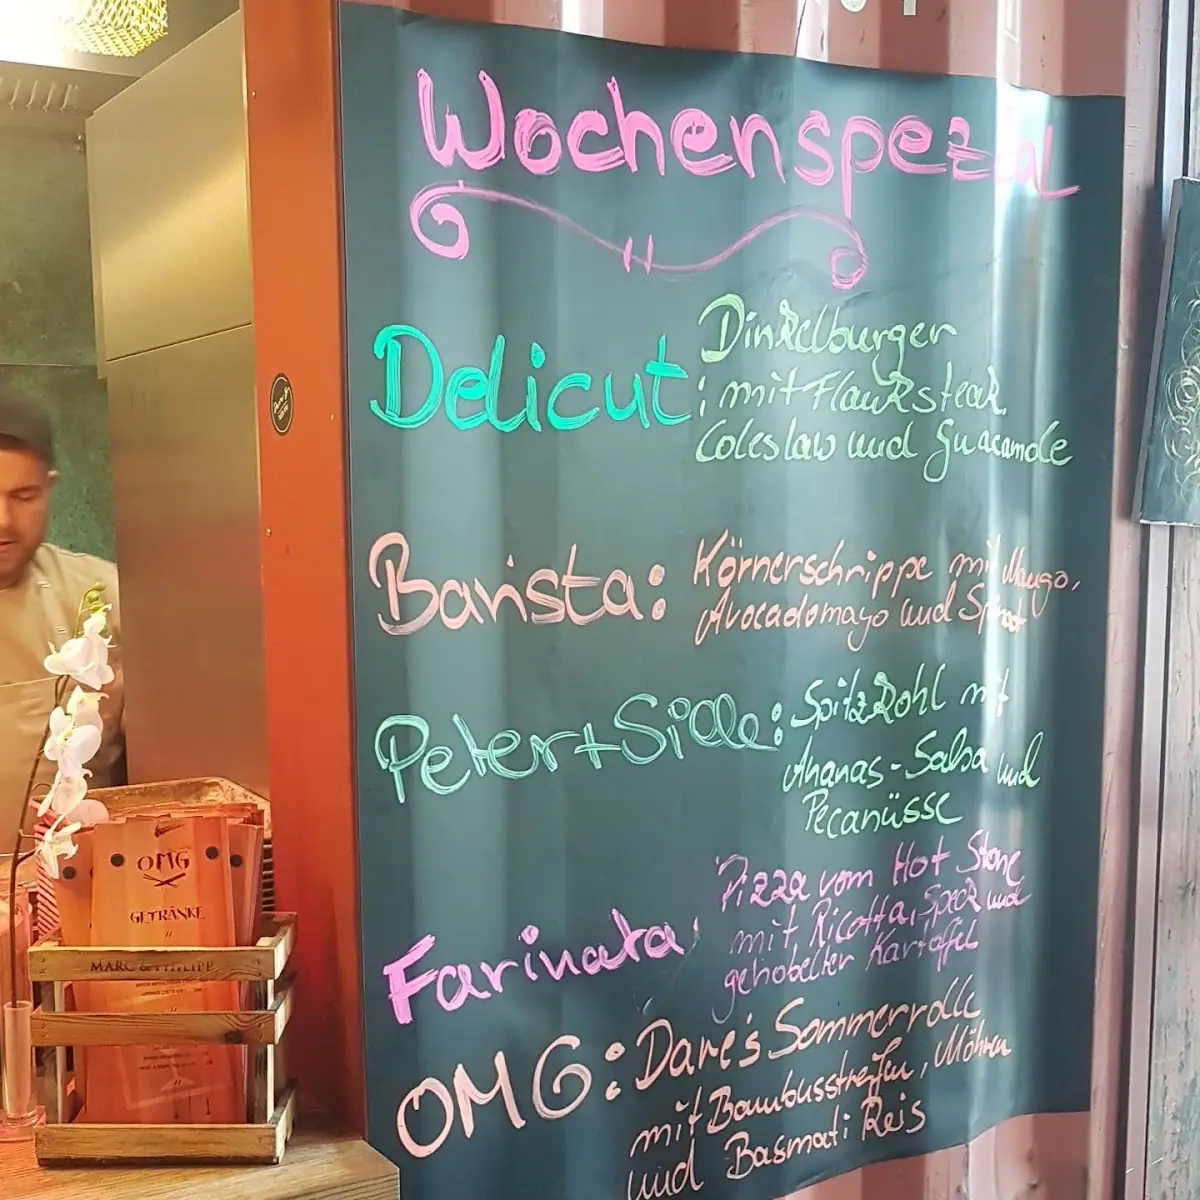 Wochenspezial
Delicut:
Dinkelburger
mit Flanksteak
Coleslaw und Guacamole
Barista:
Körnerschrippe mit Mango,
Avocadomayo und Spinat
Peter+Silie:
Spitzkohl mit
Ananas-Salsa und
Pecanüsse
Farinata:
Pizza vom Hot Stone
mit Ricotta, Speck und
gehobelter Kartoffel
OMG:
Dare's Sommerrolle
mit Bambusstreifen, Möhren
und Basmati Reis
OMG
GETRÄNKE
MARC & PHILIPP